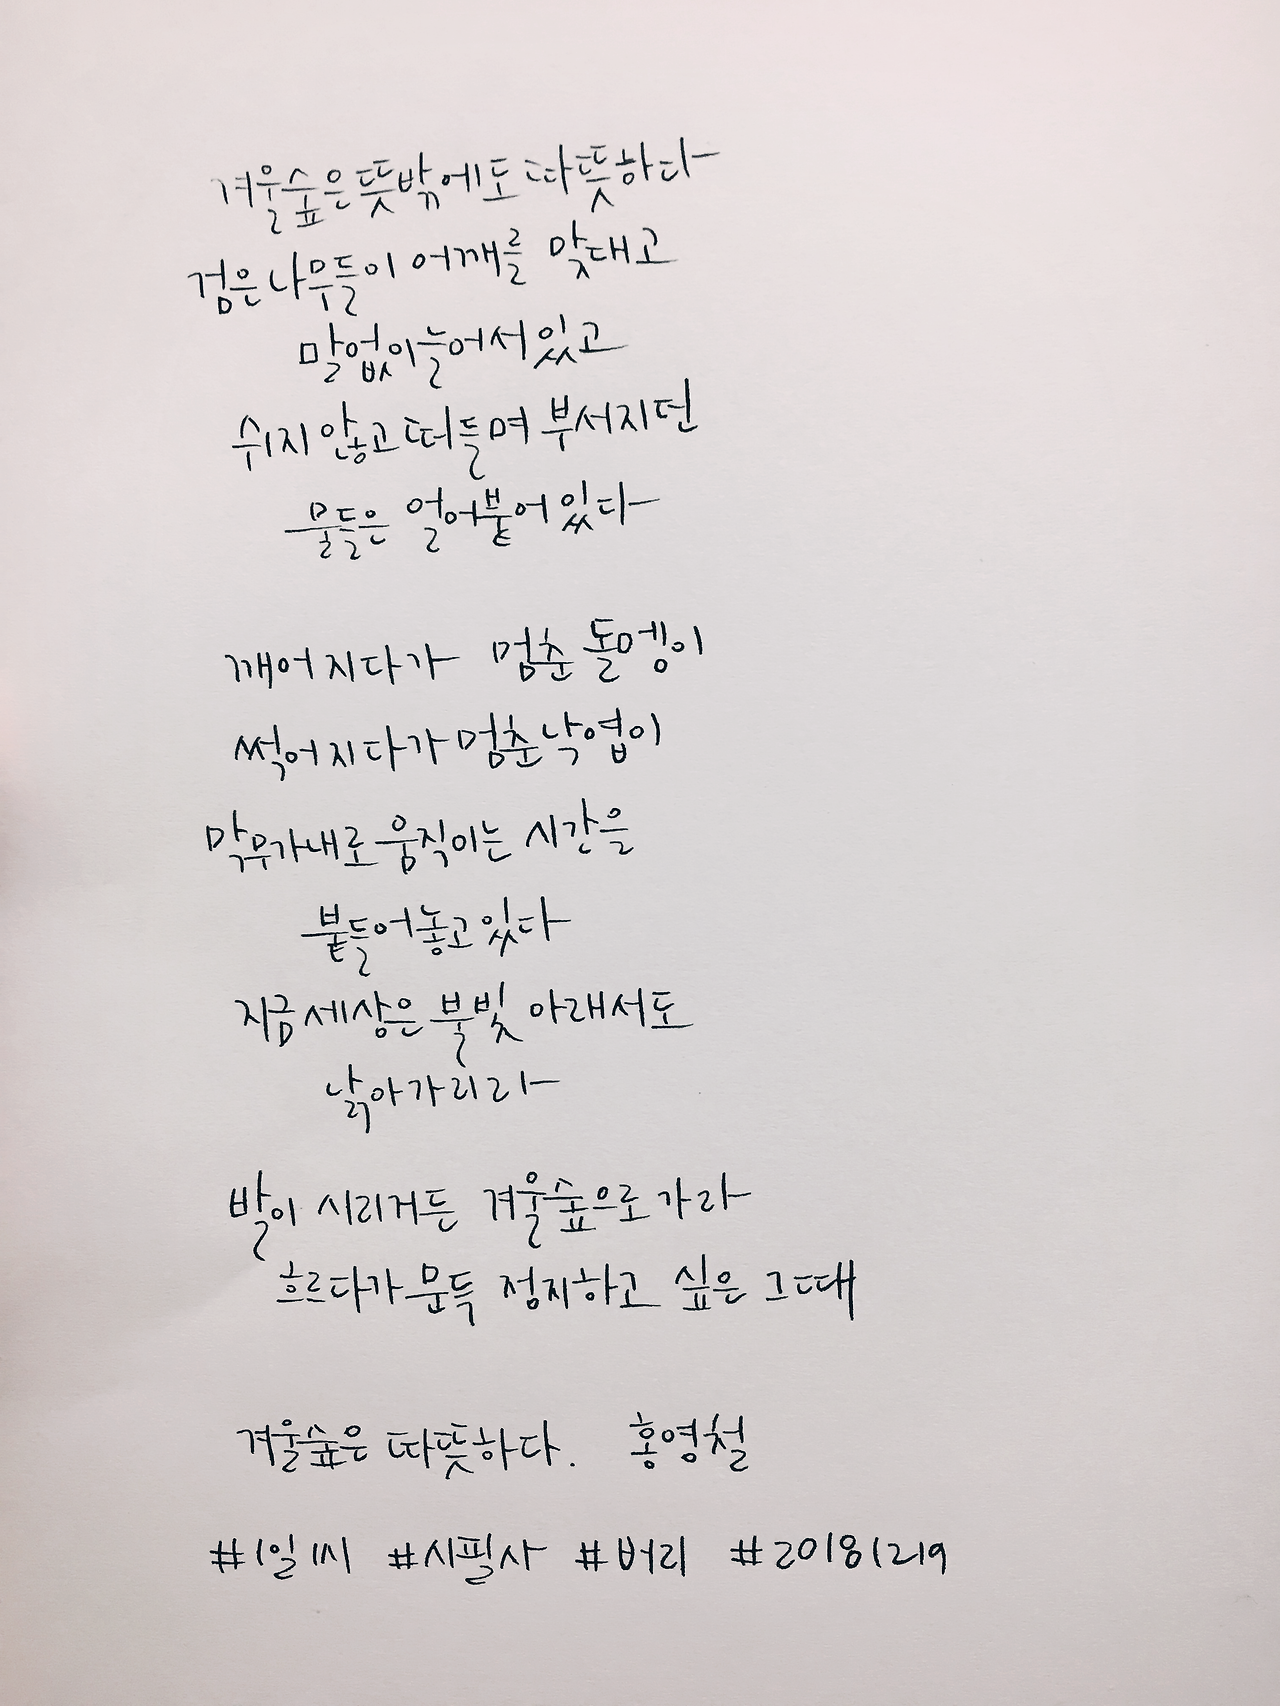 겨울숲은 뜻밖에도 따뜻하다
검은 나무들이 어깨를 맞대고
말없이 늘어서 있고
쉬지 않고 떠들며 부서지던
물들은 얼어붙어 있다
깨어지다가 멈춘 돌멩이
썩어지다가 멈춘 낙엽이
막무가내로 움직이는 시간을
붙들어 놓고 있다
지금 세상은 불빛 아래서도
낡아가리라
발이 시리거든 겨울숲으로 가라
흐르다가 문득 정지하고 싶은 그때
겨울숲은 따뜻하다. 홍영철
#1일1씨 #시필사 #버리 #20181219